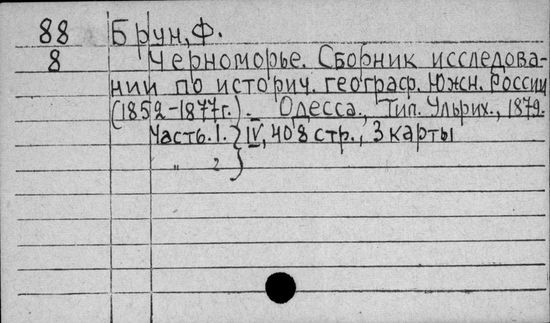 88 Брун, Ф.
8 Черноморье. Сборник исследова-
нии по историч. географ. Южн. России
(1852-1877г.). Одесса, Тип. Ульрих., 1879.
Часть. 1. } IV, 408 стр., 3 карты
„ 2 }